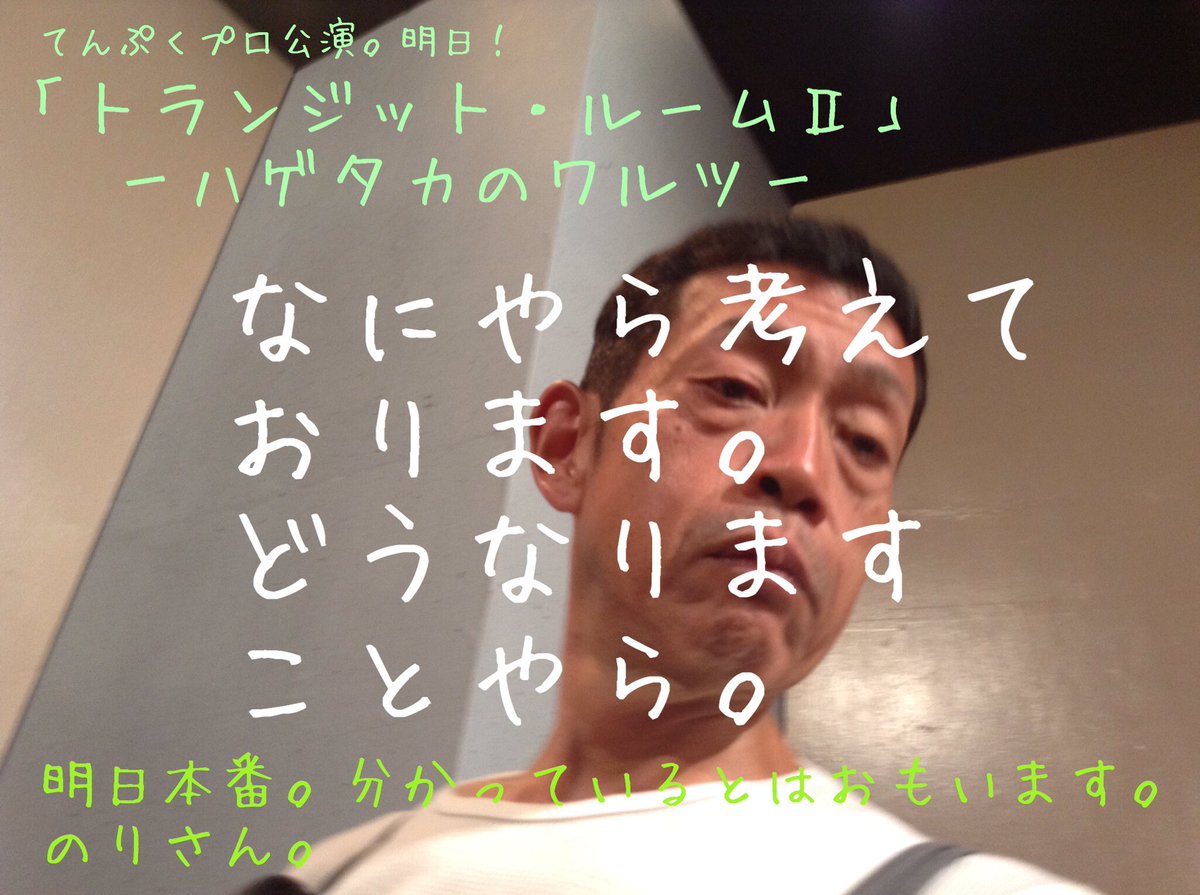 てんぷくプロ公演。明日！
「トランジット・ルームⅡ」
ーハゲタカのワルツー
なにやら考えて
おります。
どうなります
ことやら。
明日本番。分かっているとはおもいます。
のりさん。